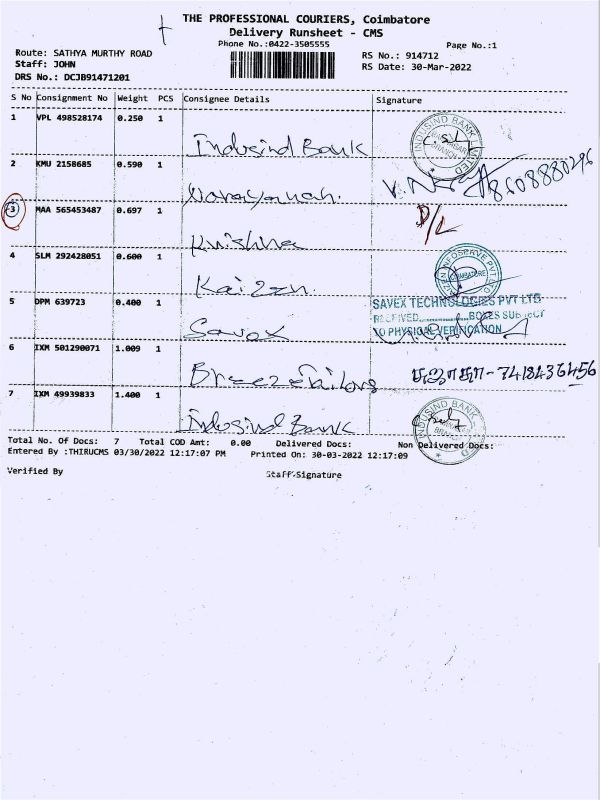 THE PROFESSIONAL COURIERS, Coimbatore
Delivery Runsheet - CMS
Phone No.:0422-3505555
Page No.:1
Route: SATHYA MURTHY ROAD
RS No.: 914712
Staff: JOHN
RS Date: 30-Mar-2022
DRS No.: DCJB91471201
S No Consignment No Weight PCS Consignee Details Signature
1 VPL 498528174 0.250 1 Indusind Bank
INDUSIND BANK LIMITED
2 KMU 2158685 0.590 1 Narayanan. 8608880296
3 MAA 565453487 0.697 1 Krishna D/L
4 SLM 292428051 0.600 1 Kaizen.
5 DPM 639723 0.400 1 Savex
SAVEX TECHNOLOGIES PVT LTD
RECEIVED..............BOXES SUBJECT
TO PHYSICAL VERIFICATION
6 IXM 501290071 1.009 1 Breeze Tailors 7418436456
7 IXM 49939833 1.400 1 Indusind Bank
INDUSIND BANK
Total No. Of Docs: 7 Total COD Amt: 0.00 Delivered Docs: Non Delivered Docs:
Entered By :THIRUCMS 03/30/2022 12:17:07 PM Printed On: 30-03-2022 12:17:09
Verified By Staff Signature